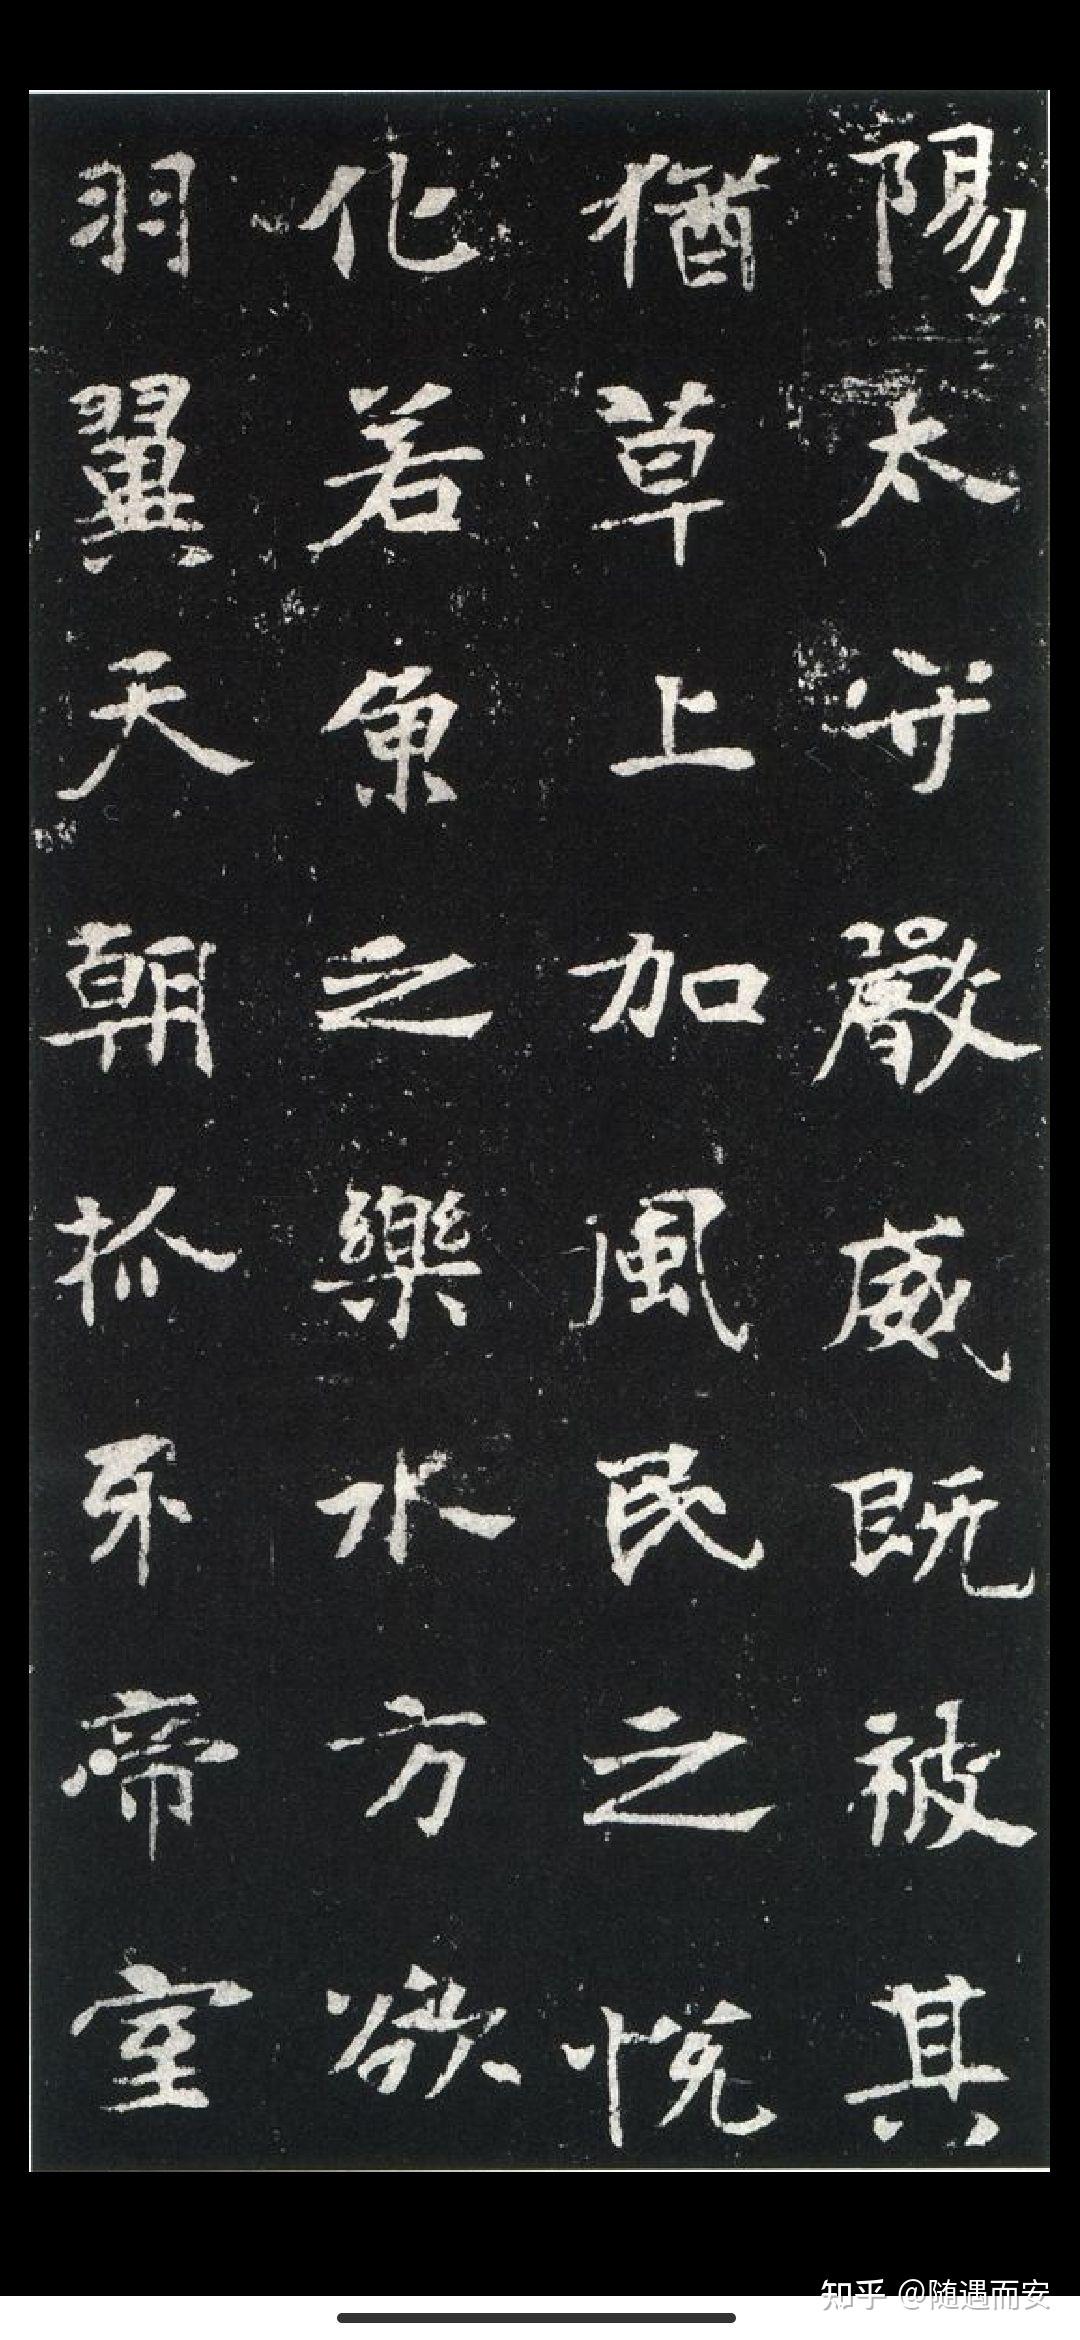 陽太守嚴威既被其
猶草上加風民之悅
化若魚之樂水方欲
羽翼天朝抓牙帝室
知乎 @随遇而安